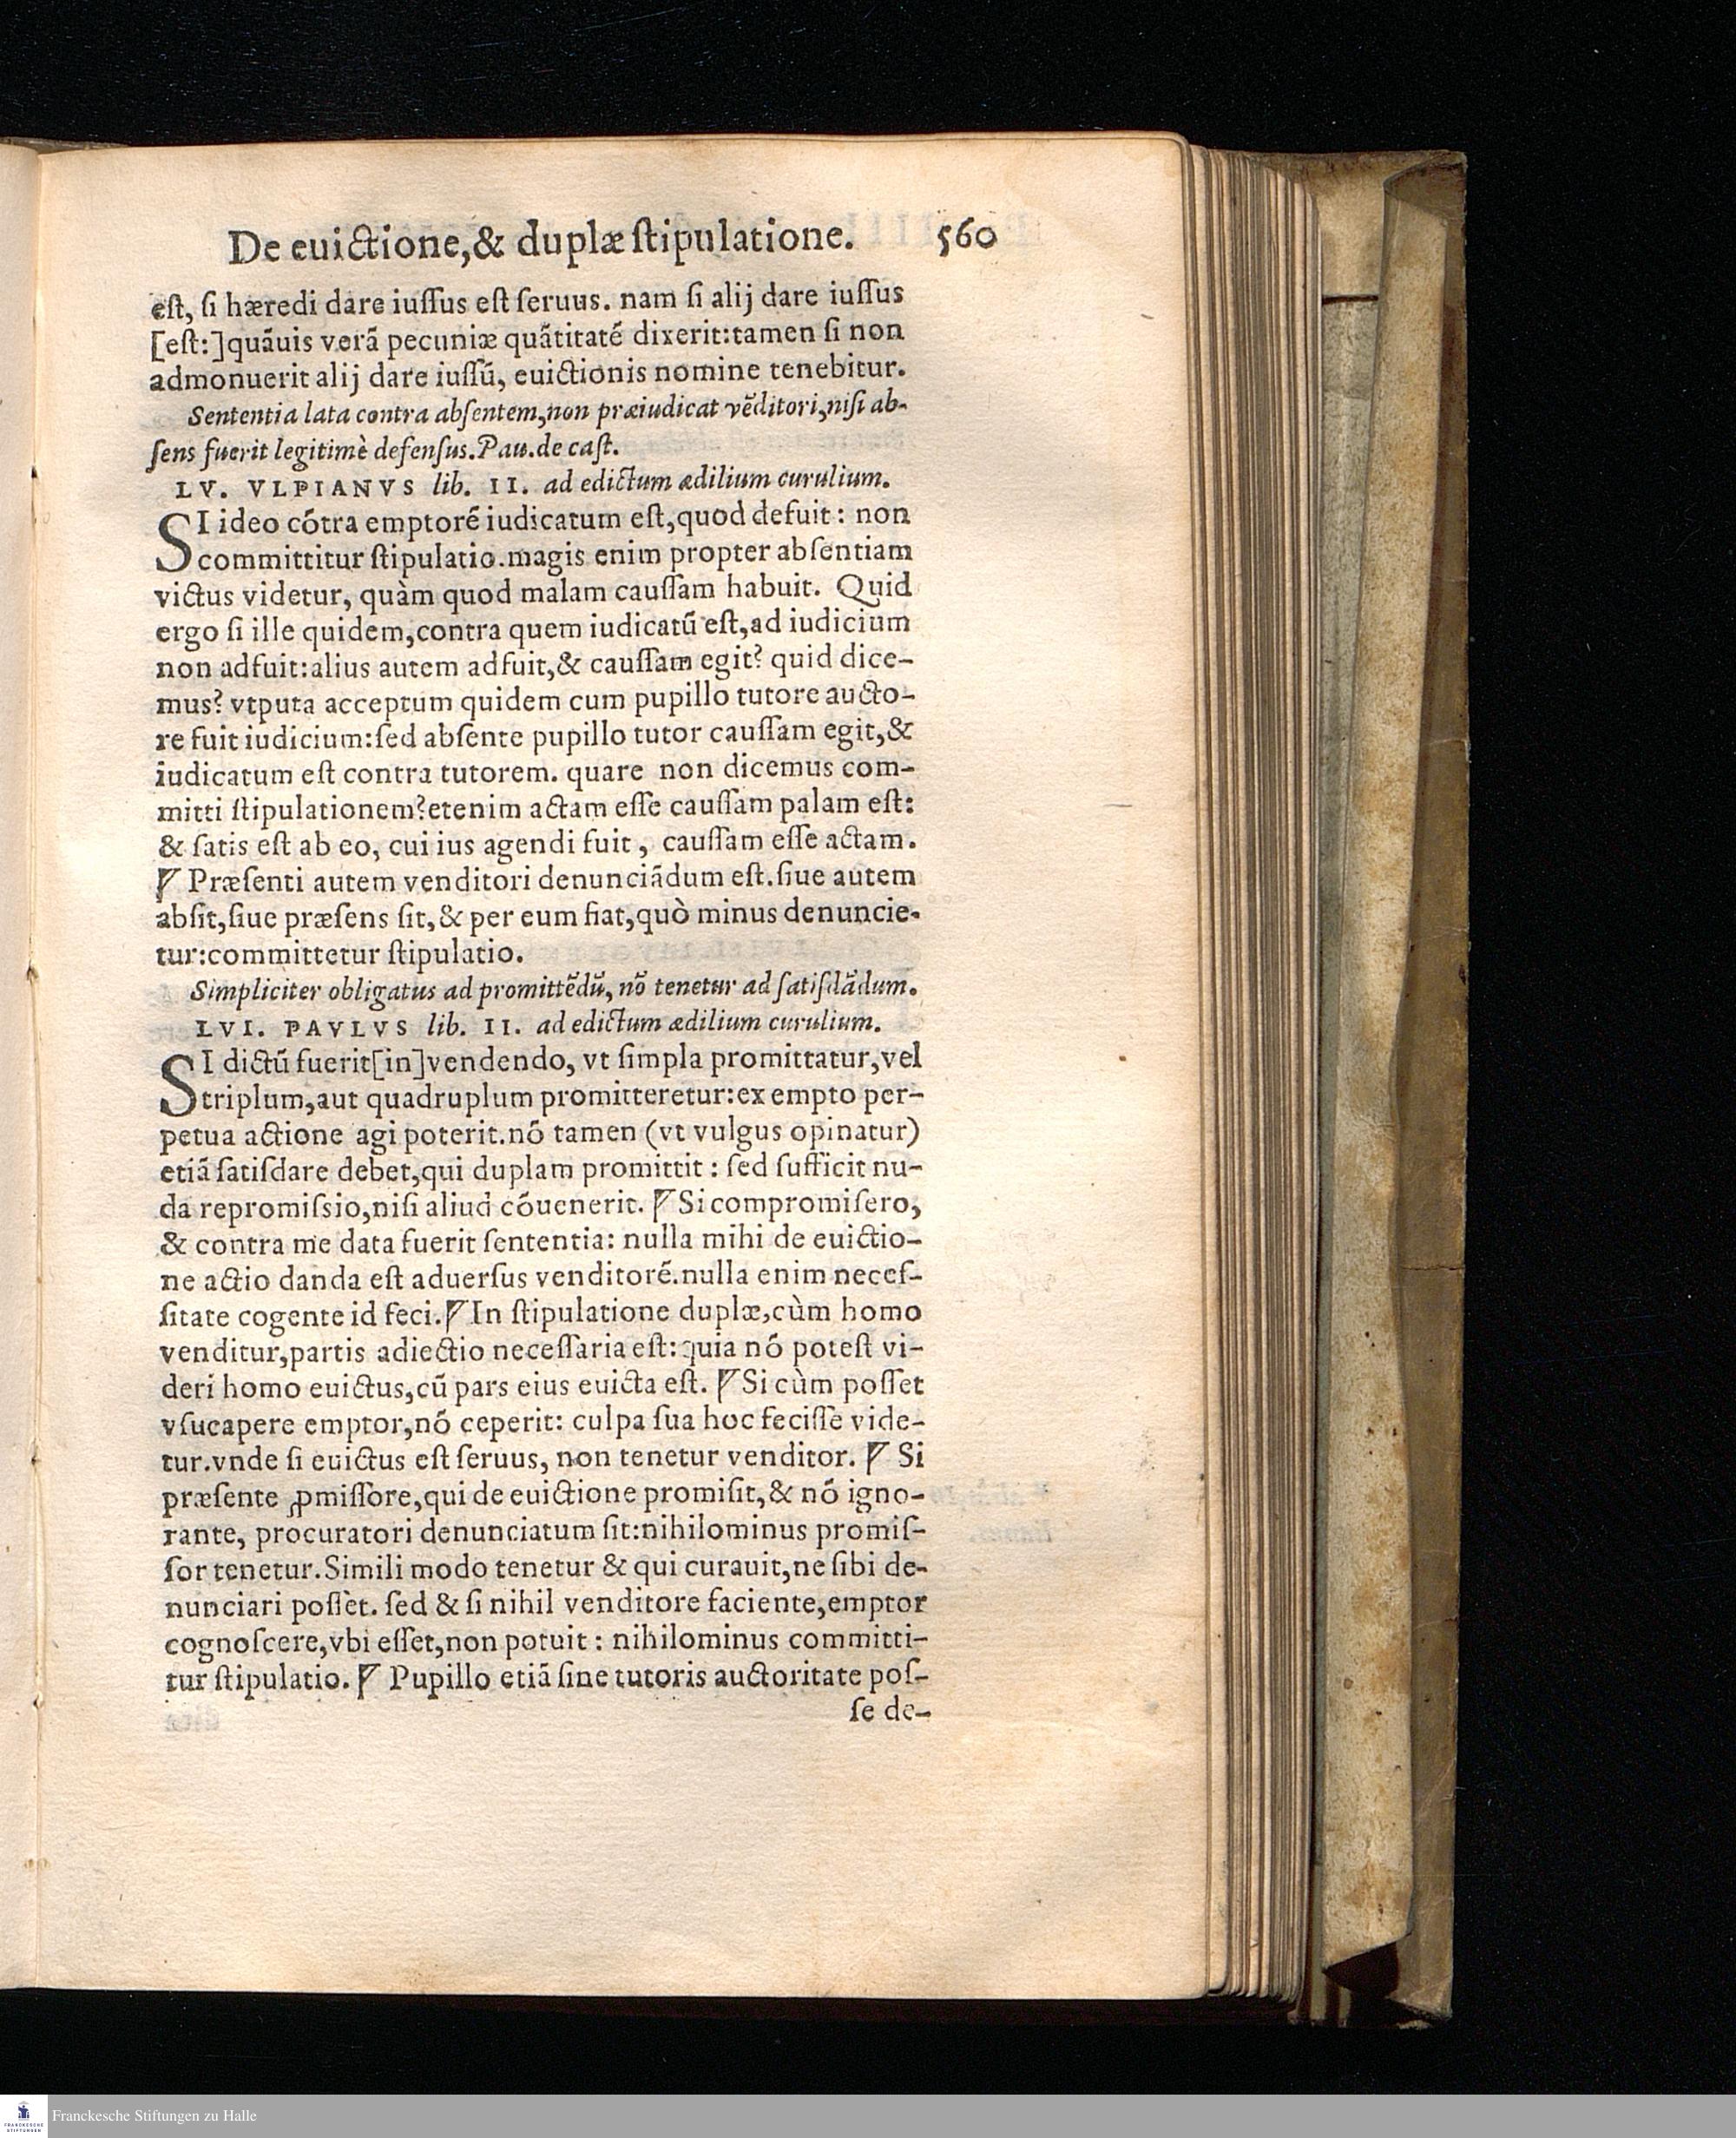 De euictione,& duplæ ſtipulatione. 560
eſt, ſi hæredi dare iuſſus eſt ſeruus. nam ſi alij dare iuſſus
[eſt:]quãuis verã pecuniæ quãtitatẽ dixerit:tamen ſi non
admonuerit alij dare iuſſũ, euictionis nomine tenebitur.
Sententia lata contra abſentem,non præiudicat vẽditori,niſi ab-
ſens fuerit legitimè defenſus.Pau.de caſt.
LV. VLPIANVS lib. II. ad edictum ædilium curulium.
SI ideo cõtra emptorẽ iudicatum eſt,quod defuit: non
committitur ſtipulatio.magis enim propter abſentiam
victus videtur, quàm quod malam cauſſam habuit. Quid
ergo ſi ille quidem,contra quem iudicatũ eſt,ad iudicium
non adfuit:alius autem adfuit,& cauſſam egit? quid dice-
mus? vtputa acceptum quidem cum pupillo tutore aucto-
re fuit iudicium:ſed abſente pupillo tutor cauſſam egit,&
iudicatum eſt contra tutorem. quare non dicemus com-
mitti ſtipulationem?etenim actam eſſe cauſſam palam eſt:
& ſatis eſt ab eo, cui ius agendi fuit, cauſſam eſſe actam.
¶ Præſenti autem venditori denunciãdum eſt.ſiue autem
abſit,ſiue præſens ſit,& per eum fiat,quò minus denuncie-
tur:committetur ſtipulatio.
Simpliciter obligatus ad promittẽdũ, nõ tenetur ad ſatiſdãdum.
LVI. PAVLVS lib. II. ad edictum ædilium curulium.
SI dictũ fuerit[in]vendendo, vt ſimpla promittatur,vel
triplum,aut quadruplum promitteretur:ex empto per-
petua actione agi poterit.nõ tamen (vt vulgus opinatur)
etiã ſatiſdare debet,qui duplam promittit: ſed ſufficit nu-
da repromiſsio,niſi aliud cõuenerit. ¶ Si compromiſero,
& contra me data fuerit ſententia: nulla mihi de euictio-
ne actio danda eſt aduerſus venditorẽ.nulla enim neceſ-
ſitate cogente id feci.¶ In ſtipulatione duplæ,cùm homo
venditur,partis adiectio neceſſaria eſt:quia nõ poteſt vi-
deri homo euictus,cũ pars eius euicta eſt. ¶ Si cùm poſſet
vſucapere emptor,nõ ceperit: culpa ſua hoc feciſſe vide-
tur.vnde ſi euictus eſt ſeruus, non tenetur venditor. ¶ Si
præſente ꝓmiſſore,qui de euictione promiſit,& nõ igno-
rante, procuratori denunciatum ſit:nihilominus promiſ-
ſor tenetur.Simili modo tenetur & qui curauit,ne ſibi de-
nunciari poſſet. ſed & ſi nihil venditore faciente,emptor
cognoſcere,vbi eſſet,non potuit: nihilominus committi-
tur ſtipulatio. ¶ Pupillo etiã ſine tutoris auctoritate poſ-
ſe de-
Franckesche Stiftungen zu Halle
FRANCKESCHE
STIFTUNGEN